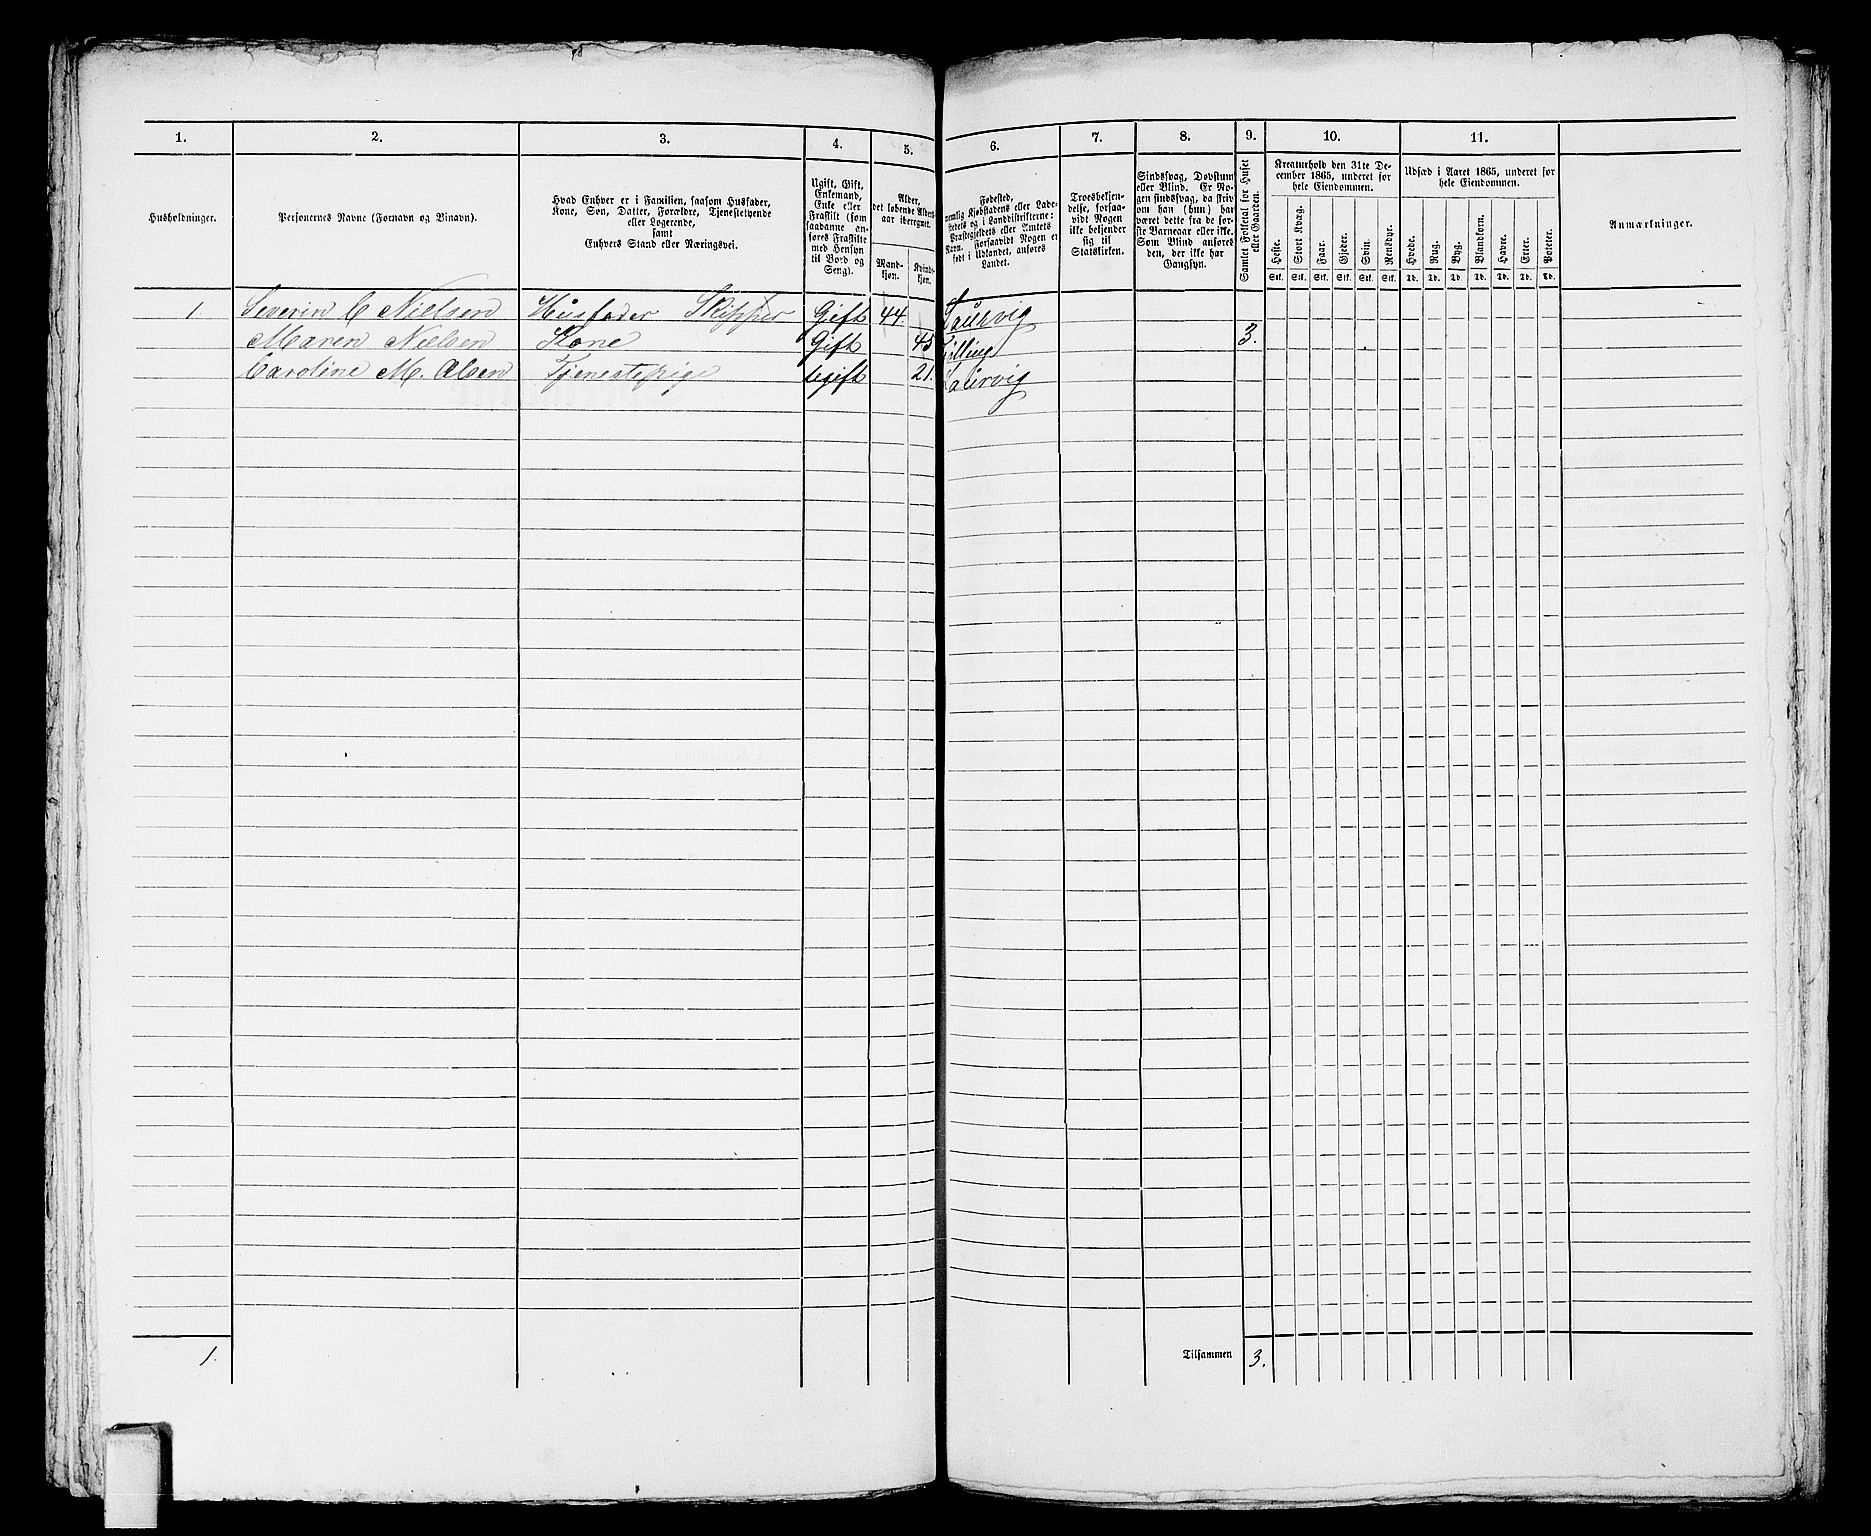 1. 2. 3. 4. 5. 6. 7. 8. 9. 10. 11.
Husholdninger.
Personernes Navne (Fornavn og Binavn).
Hvad Enhver er i Familien, saasom Husfader,
Kone, Søn, Datter, Forældre, Tjenestetyende
eller Logerende,
samt
Enhvers Stand eller Næringsvei.
Ugift, Gift,
Enkemand,
Enke eller
Fraskilt (som
saadanne an-
føres Fraskilte
med Hensyn
til Bord og
Seng).
Alder,
det løbende Alders-
aar iberegnet.
Mand-
kjøn.
Kvinde-
kjøn.
Fødested,
nemlig Kjøbstadens eller Lade-
stedets og i Landdistrikterne:
Præstegjeldets eller Amtets
Navn. Forsaavidt Nogen er
født i Udlandet, anføres
Landet.
Troesbekjen-
delse, forsaa-
vidt Nogen
ikke bekjender
sig til
Statskirken.
Sindssvag, Døvstum
eller Blind. Er No-
gen sindssvag, da skriv
om han (hun) har
været dette fra de før-
ste Barneaar eller ikke.
Som Blind anføres
den, der ikke har
Gangsyn.
Samlet Folketal for Huset
eller Gaarden.
Kreaturhold den 31te De-
cember 1865, underet for
hele Eiendommen.
Heste. Stort Kvæg. Faar. Gjeder. Svin. Rensdyr.
Stk. Stk. Stk. Stk. Stk. Stk.
Udsæd i Aaret 1865, underet for
hele Eiendommen.
Hvede. Rug. Byg. Blandkorn. Havre. Erter. Poteter.
Td. Td. Td. Td. Td. Td. Td.
Anmærkninger.
1. Severin C Nielsen Husfader Skipper Gift 44. Laurvig
Maren Nielsen Kone Gift 45 Tjølling 3.
Caroline M. Olsen Tjenestepige Ugift 21. Laurvig
1. Tilsammen 3.